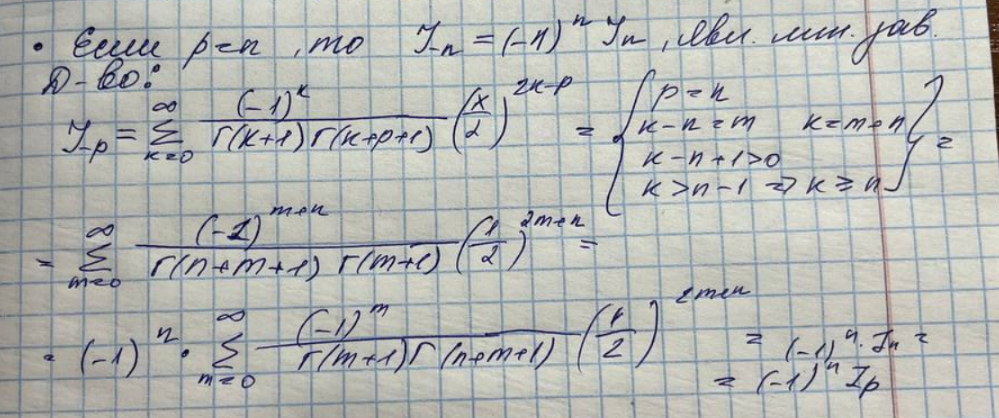 • Если p=n, то J₋n = (-1)ⁿ Jn, явл. лин. зав.
Д-во:
J₋p = ∑_{k=0}^{∞} (-1)^k / (Γ(k+1) Γ(k+p+1)) (x/2)^{2k-p} = { p=n
k-n=m k=m+n
k-n+1>0
k>n-1 ⇒ k≥n } =
= ∑_{m=0}^{∞} (-1)^{m+n} / (Γ(n+m+1) Γ(m+1)) (x/2)^{2m+n} =
= (-1)ⁿ · ∑_{m=0}^{∞} (-1)^m / (Γ(m+1) Γ(n+m+1)) (x/2)^{2m+n} = (-1)ⁿ · Jn =
= (-1)ⁿ Jp